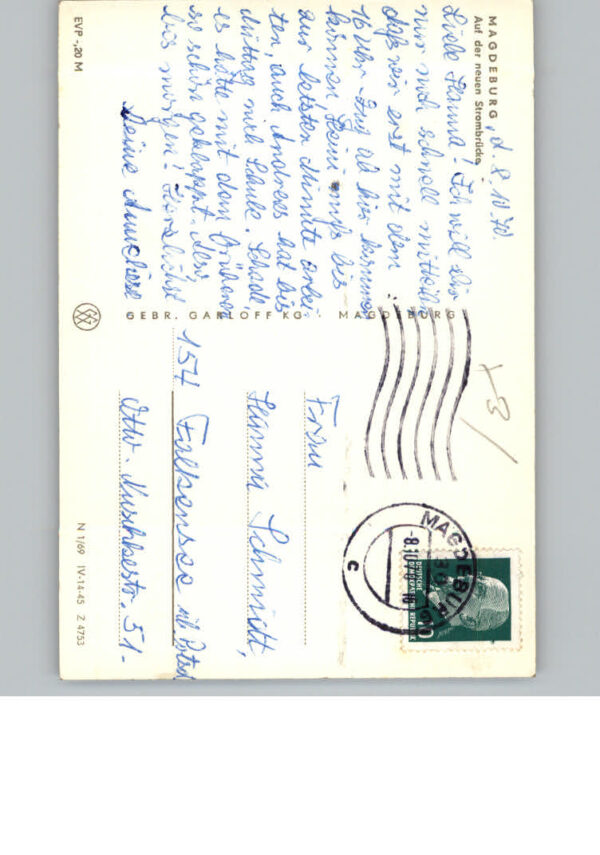 MAGDEBURG, d. 8. 10. 70.
Auf der neuen Strombrücke
Liebe Hanna! Ich will Dir
nur noch schnell mitteilen
daß wir erst mit dem
16 Uhr-Zug ab hier kommen
können. Heini muß bis
zur letzten Minute arbei-
ten, auch Andreas hat bis
Mittag noch Schule. Schade,
es hätte mit dem
so schön geklappt. Nun
bis morgen!
Deine
EVP -,20 M
GEBR. GARLOFF KG MAGDEBURG
+3
MAGDEBURG
-8.10.70
C
DEUTSCHE
DEMOKRATISCHE REPUBLIK
Frau
Hanna Schmidt,
154 Falkensee
Otto-
51-
N 1/69 IV-14-45 Z 4753